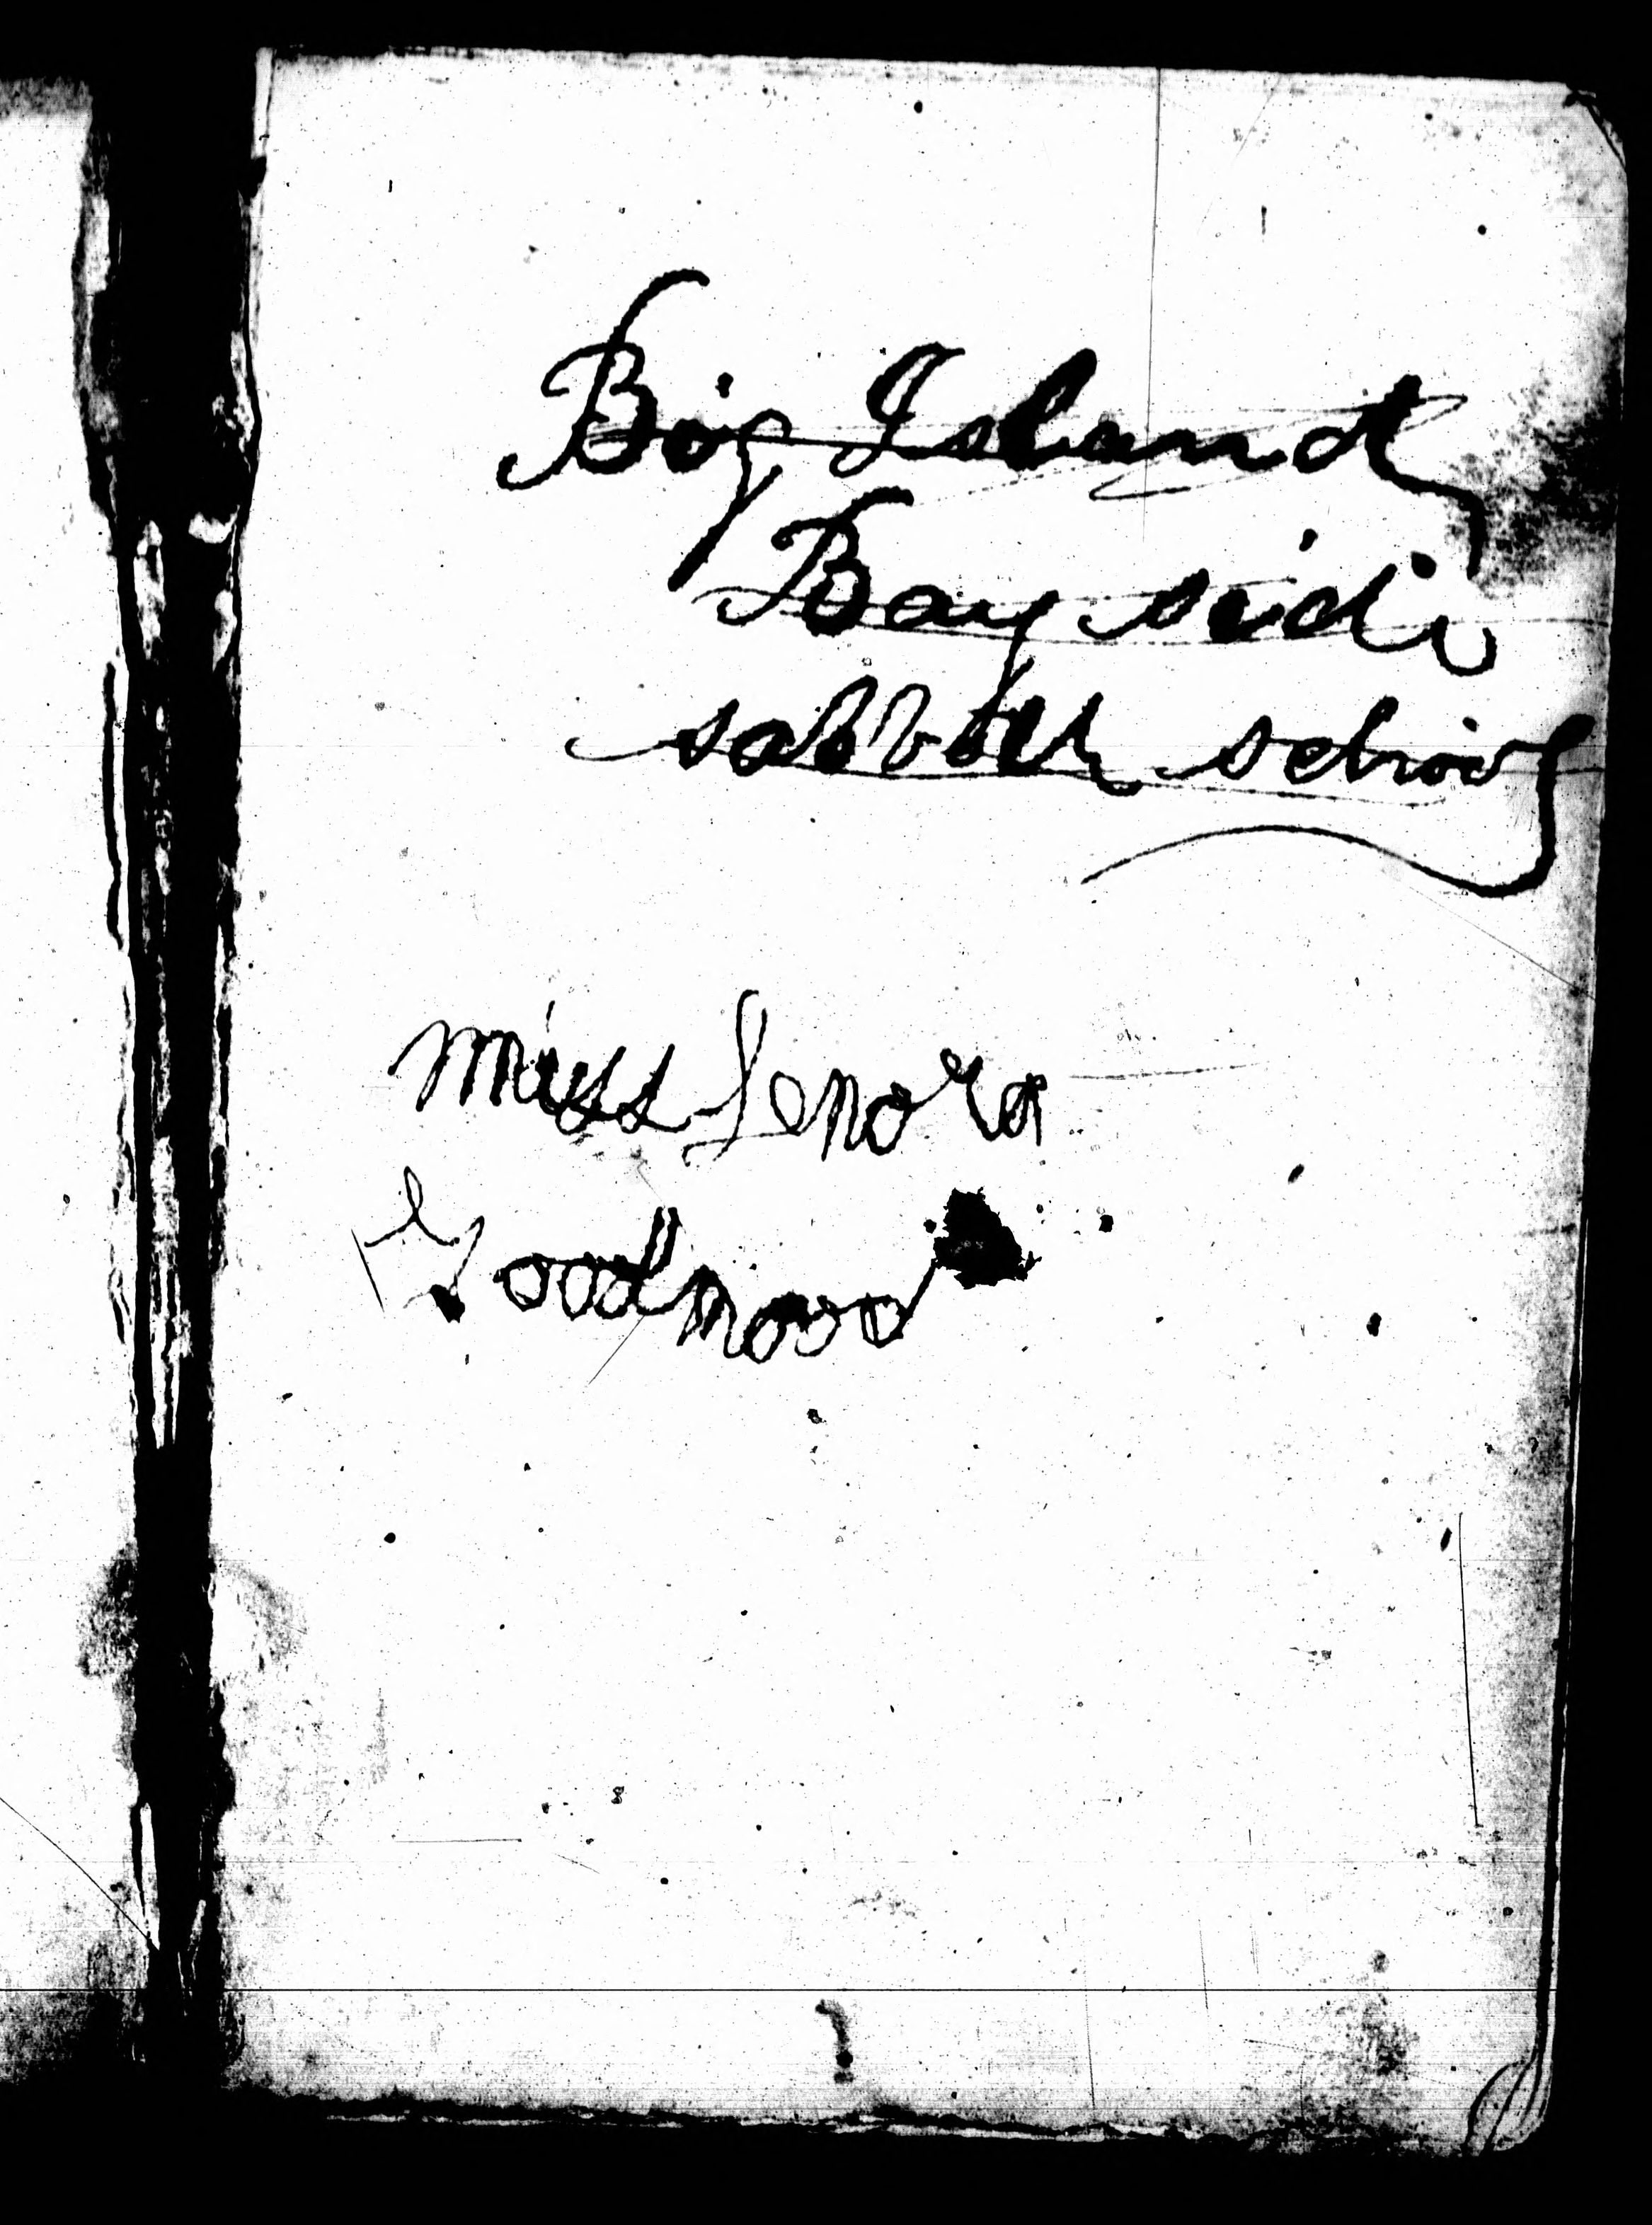 Big Island
Bay side
sabbath school
miss Lenora